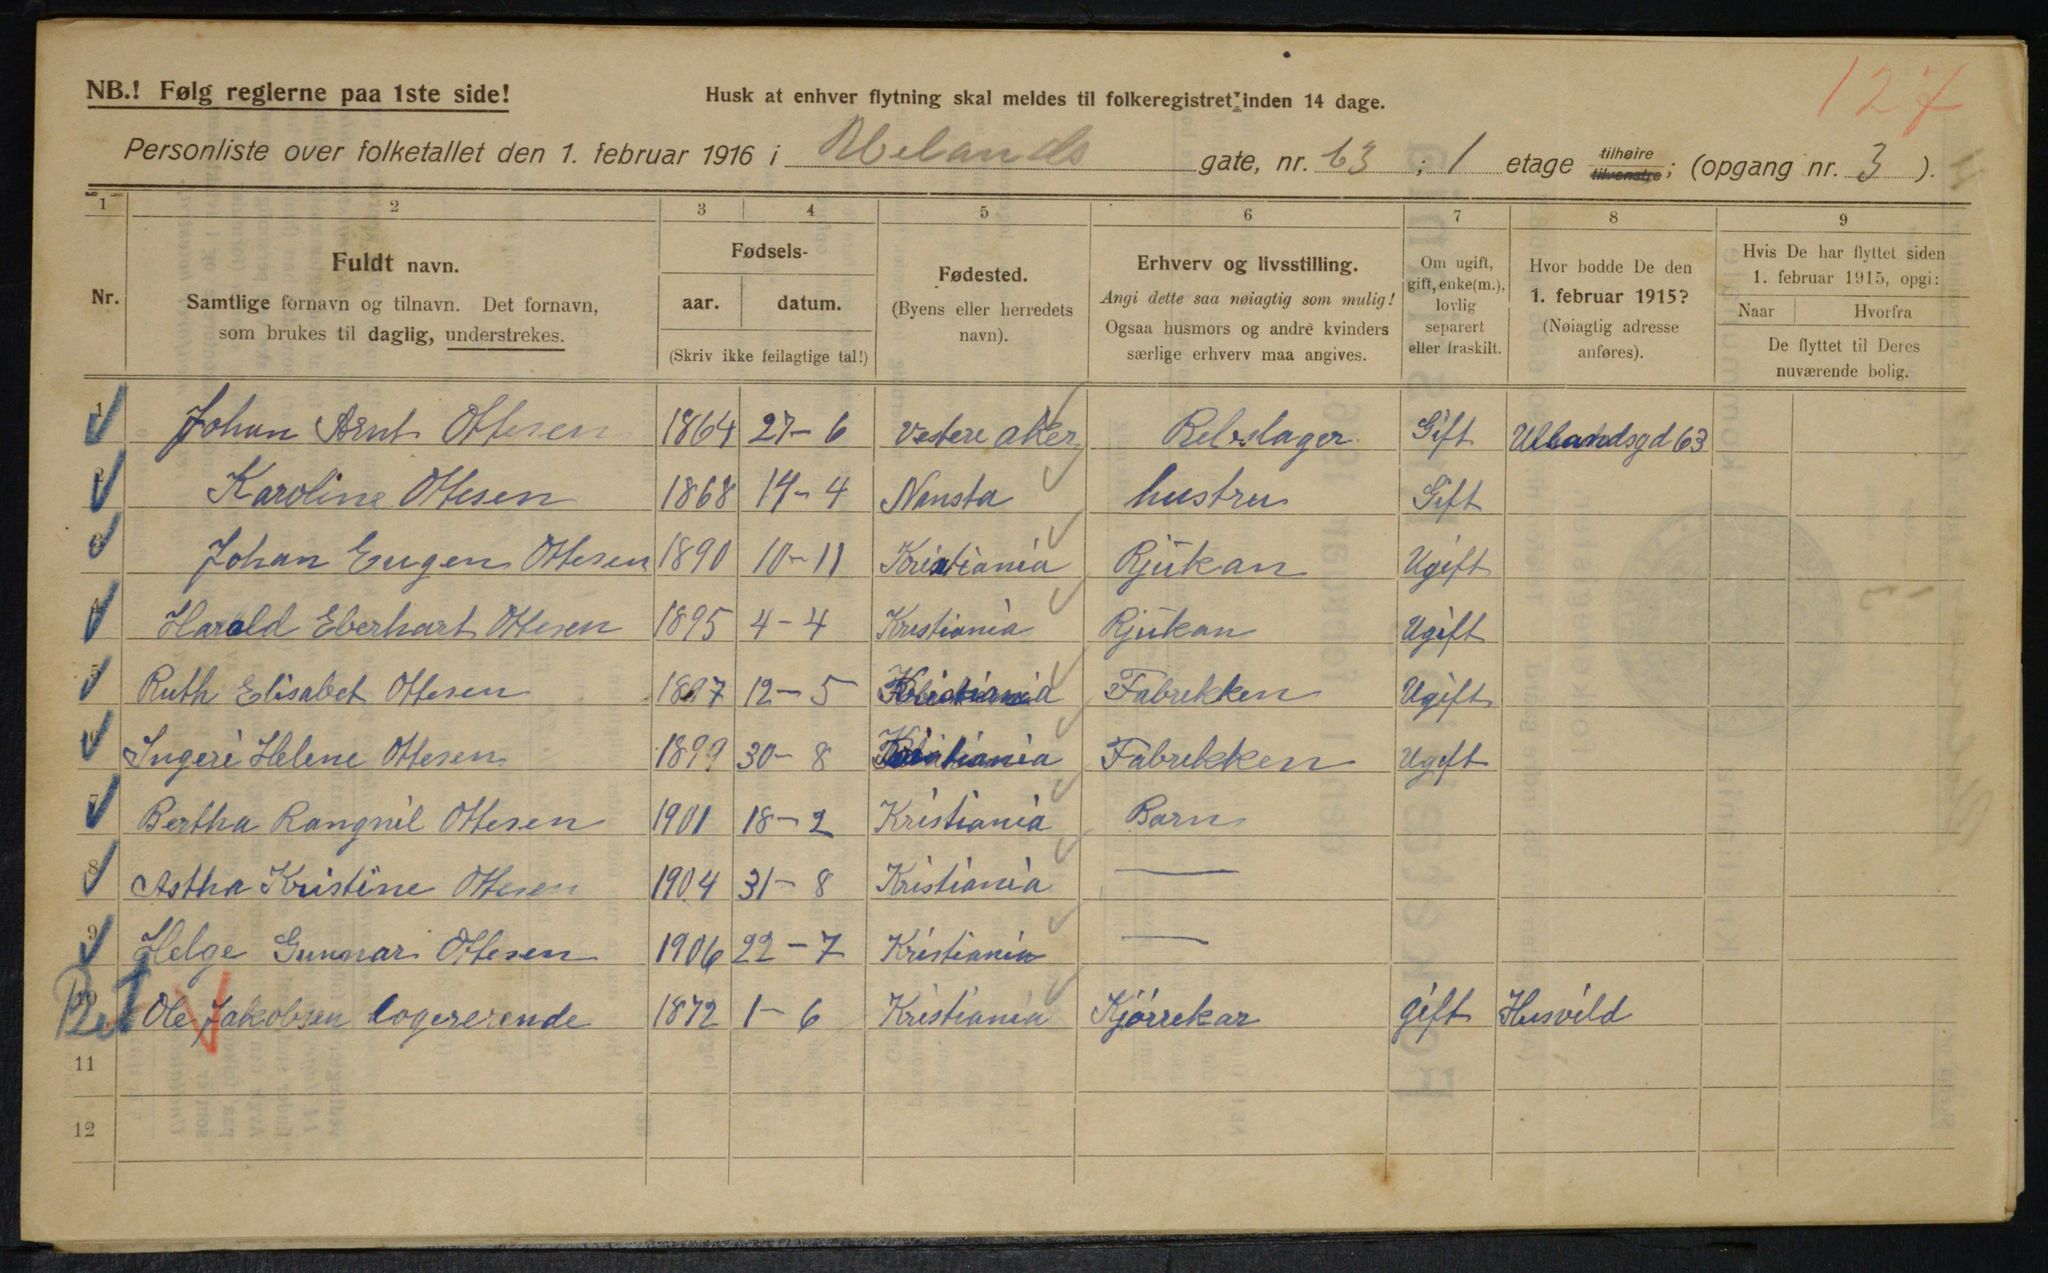 NB.! Følg reglerne paa 1ste side!
Husk at enhver flytning skal meldes til folkeregistret inden 14 dage.
127
Personliste over folketallet den 1. februar 1916 i Uelands gate, nr. 63 ; 1 etage tilhøire tilvenstre; (opgang nr. 3 ).
1 2 3 4 5 6 7 8 9
Nr.
Fuldt navn.
Samtlige fornavn og tilnavn. Det fornavn,
som brukes til daglig, understrekes.
Fødsels-
aar. datum.
(Skriv ikke feilagtige tal!)
Fødested.
(Byens eller herredets
navn).
Erhverv og livsstilling.
Angi dette saa nøiagtig som mulig!
Ogsaa husmors og andre kvinders
særlige erhverv maa angives.
Om ugift,
gift, enke(m.),
lovlig
separert
eller fraskilt.
Hvor bodde De den
1. februar 1915?
(Nøiagtig adresse
anføres).
Hvis De har flyttet siden
1. februar 1915, opgi:
Naar Hvorfra
De flyttet til Deres
nuværende bolig.
1 Johan Arnt Ottesen 1864 27-6 Vestere aker Rebslager Gift Ullandsgd 63
2 Karoline Ottesen 1868 14-4 Nansta hustru Gift
3 Johan Eugen Ottesen 1890 10-11 Kristiania Rjukan Ugift
4 Harald Eberhart Ottesen 1895 4-4 Kristiania Rjukan Ugift
5 Ruth Elisabet Ottesen 1897 12-5 Kristiania Fabrekken Ugift
6 Ingeri Helene Ottesen 1899 30-8 Kristiania Fabrekken Ugift
7 Bertha Rangnil Ottesen 1901 18-2 Kristiania Barn
8 Astha Kristine Ottesen 1904 31-8 Kristiania —
9 Helge Gunnar Ottesen 1906 22-7 Kristiania —
10 Ole Jakobsen logererende 1872 1-6 Kristiania Kjörrekar gift Husvild
11
12